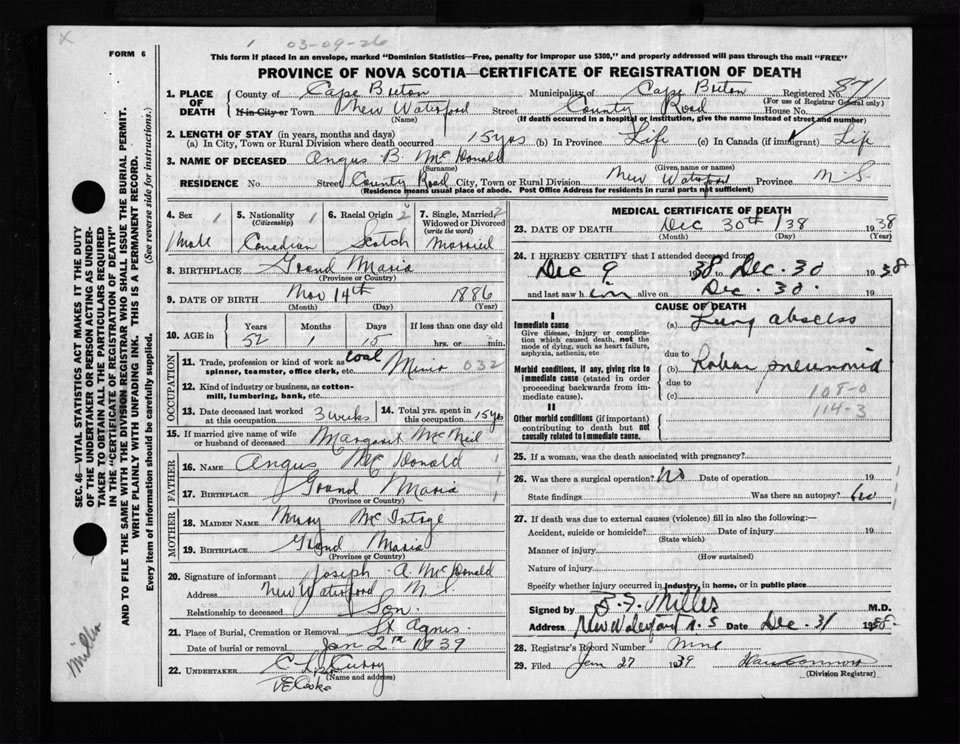 X
1 03-09-26
FORM 6
This form if placed in an envelope, marked "Dominion Statistics—Free, penalty for improper use $300," and properly addressed will pass through the mail "FREE"
PROVINCE OF NOVA SCOTIA—CERTIFICATE OF REGISTRATION OF DEATH
1. PLACE OF DEATH County of Cape Breton Municipality of Cape Breton Registered No. 871
(For use of Registrar General only)
If in City or Town New Waterford Street County Road House No.
(Name) (If death occurred in a hospital or institution, give the name instead of street and number)
2. LENGTH OF STAY (in years, months and days)
(a) In City, Town or Rural Division where death occurred 15 yrs (b) In Province Life (c) In Canada (if immigrant) Life
3. NAME OF DECEASED Angus B. McDonald
(Surname) (Given name or names)
RESIDENCE No. Street County Road City, Town or Rural Division New Waterford Province N S.
(Residence means usual place of abode. Post Office Address for residents in rural parts not sufficient)
4. Sex 1 Male
5. Nationality 1 (Citizenship) Canadian
6. Racial Origin 2 Scotch
7. Single, Married, 2 Widowed or Divorced (write the word) Married
8. BIRTHPLACE Grand Maria
(Province or Country)
9. DATE OF BIRTH Nov 14th 1886
(Month) (Day) (Year)
10. AGE in Years Months Days If less than one day old
52 1 15 hrs. or min.
OCCUPATION
11. Trade, profession or kind of work as spinner, teamster, office clerk, etc. Coal Miner 032
12. Kind of industry or business, as cotton-mill, lumbering, bank, etc.
13. Date deceased last worked at this occupation 3 weeks
14. Total yrs. spent in this occupation 15 yrs
15. If married give name of wife or husband of deceased Margaret McNeil
FATHER
16. NAME Angus McDonald 1
17. BIRTHPLACE Grand Maria 1
(Province or Country)
MOTHER
18. MAIDEN NAME Mary McIntyre
19. BIRTHPLACE Grand Maria
(Province or Country)
20. Signature of informant Joseph A. McDonald
Address New Waterford N. S
Relationship to deceased Son.
21. Place of Burial, Cremation or Removal St Agnes.
Date of burial or removal Jan 2nd 1939
22. UNDERTAKER C L Curry
(Name and address)
MEDICAL CERTIFICATE OF DEATH
23. DATE OF DEATH Dec 30th /38 1938
(Month) (Day) (Year)
24. I HEREBY CERTIFY that I attended deceased from
Dec 9 1938 to Dec. 30 1938
and last saw him alive on Dec. 30.
CAUSE OF DEATH
I
Immediate cause
Give disease, injury or complication which caused death, not the mode of dying, such as heart failure, asphyxia, asthenia, etc
(a) Lung abscess
due to
Morbid conditions, if any, giving rise to immediate cause (stated in order proceeding backwards from immediate cause).
(b) Lobar pneumonia
due to
(c) 108-0
114-3
II
Other morbid conditions (if important) contributing to death but not causally related to immediate cause.
25. If a woman, was the death associated with pregnancy?
26. Was there a surgical operation? No Date of operation 19
State findings Was there an autopsy?
27. If death was due to external causes (violence) fill in also the following:—
Accident, suicide or homicide? Date of injury 19
(State which)
Manner of injury
(How sustained)
Nature of injury
Specify whether injury occurred in industry, in home, or in public place
Signed by Miller M.D.
Address New Waterford N. S Date Dec. 31 1938
28. Registrar's Record Number
29. Filed Jan 27 1939
(Division Registrar)
SEC. 46—VITAL STATISTICS ACT MAKES IT THE DUTY
OF THE UNDERTAKER OR PERSON ACTING AS UNDERTAKER TO OBTAIN ALL THE PARTICULARS REQUIRED
IN THE "CERTIFICATE OF REGISTRATION OF DEATH"
AND TO FILE THE SAME WITH THE DIVISION REGISTRAR WHO SHALL ISSUE THE BURIAL PERMIT.
WRITE PLAINLY WITH UNFADING INK. THIS IS A PERMANENT RECORD.
Every item of information should be carefully supplied. (See reverse side for instructions.)
Miller